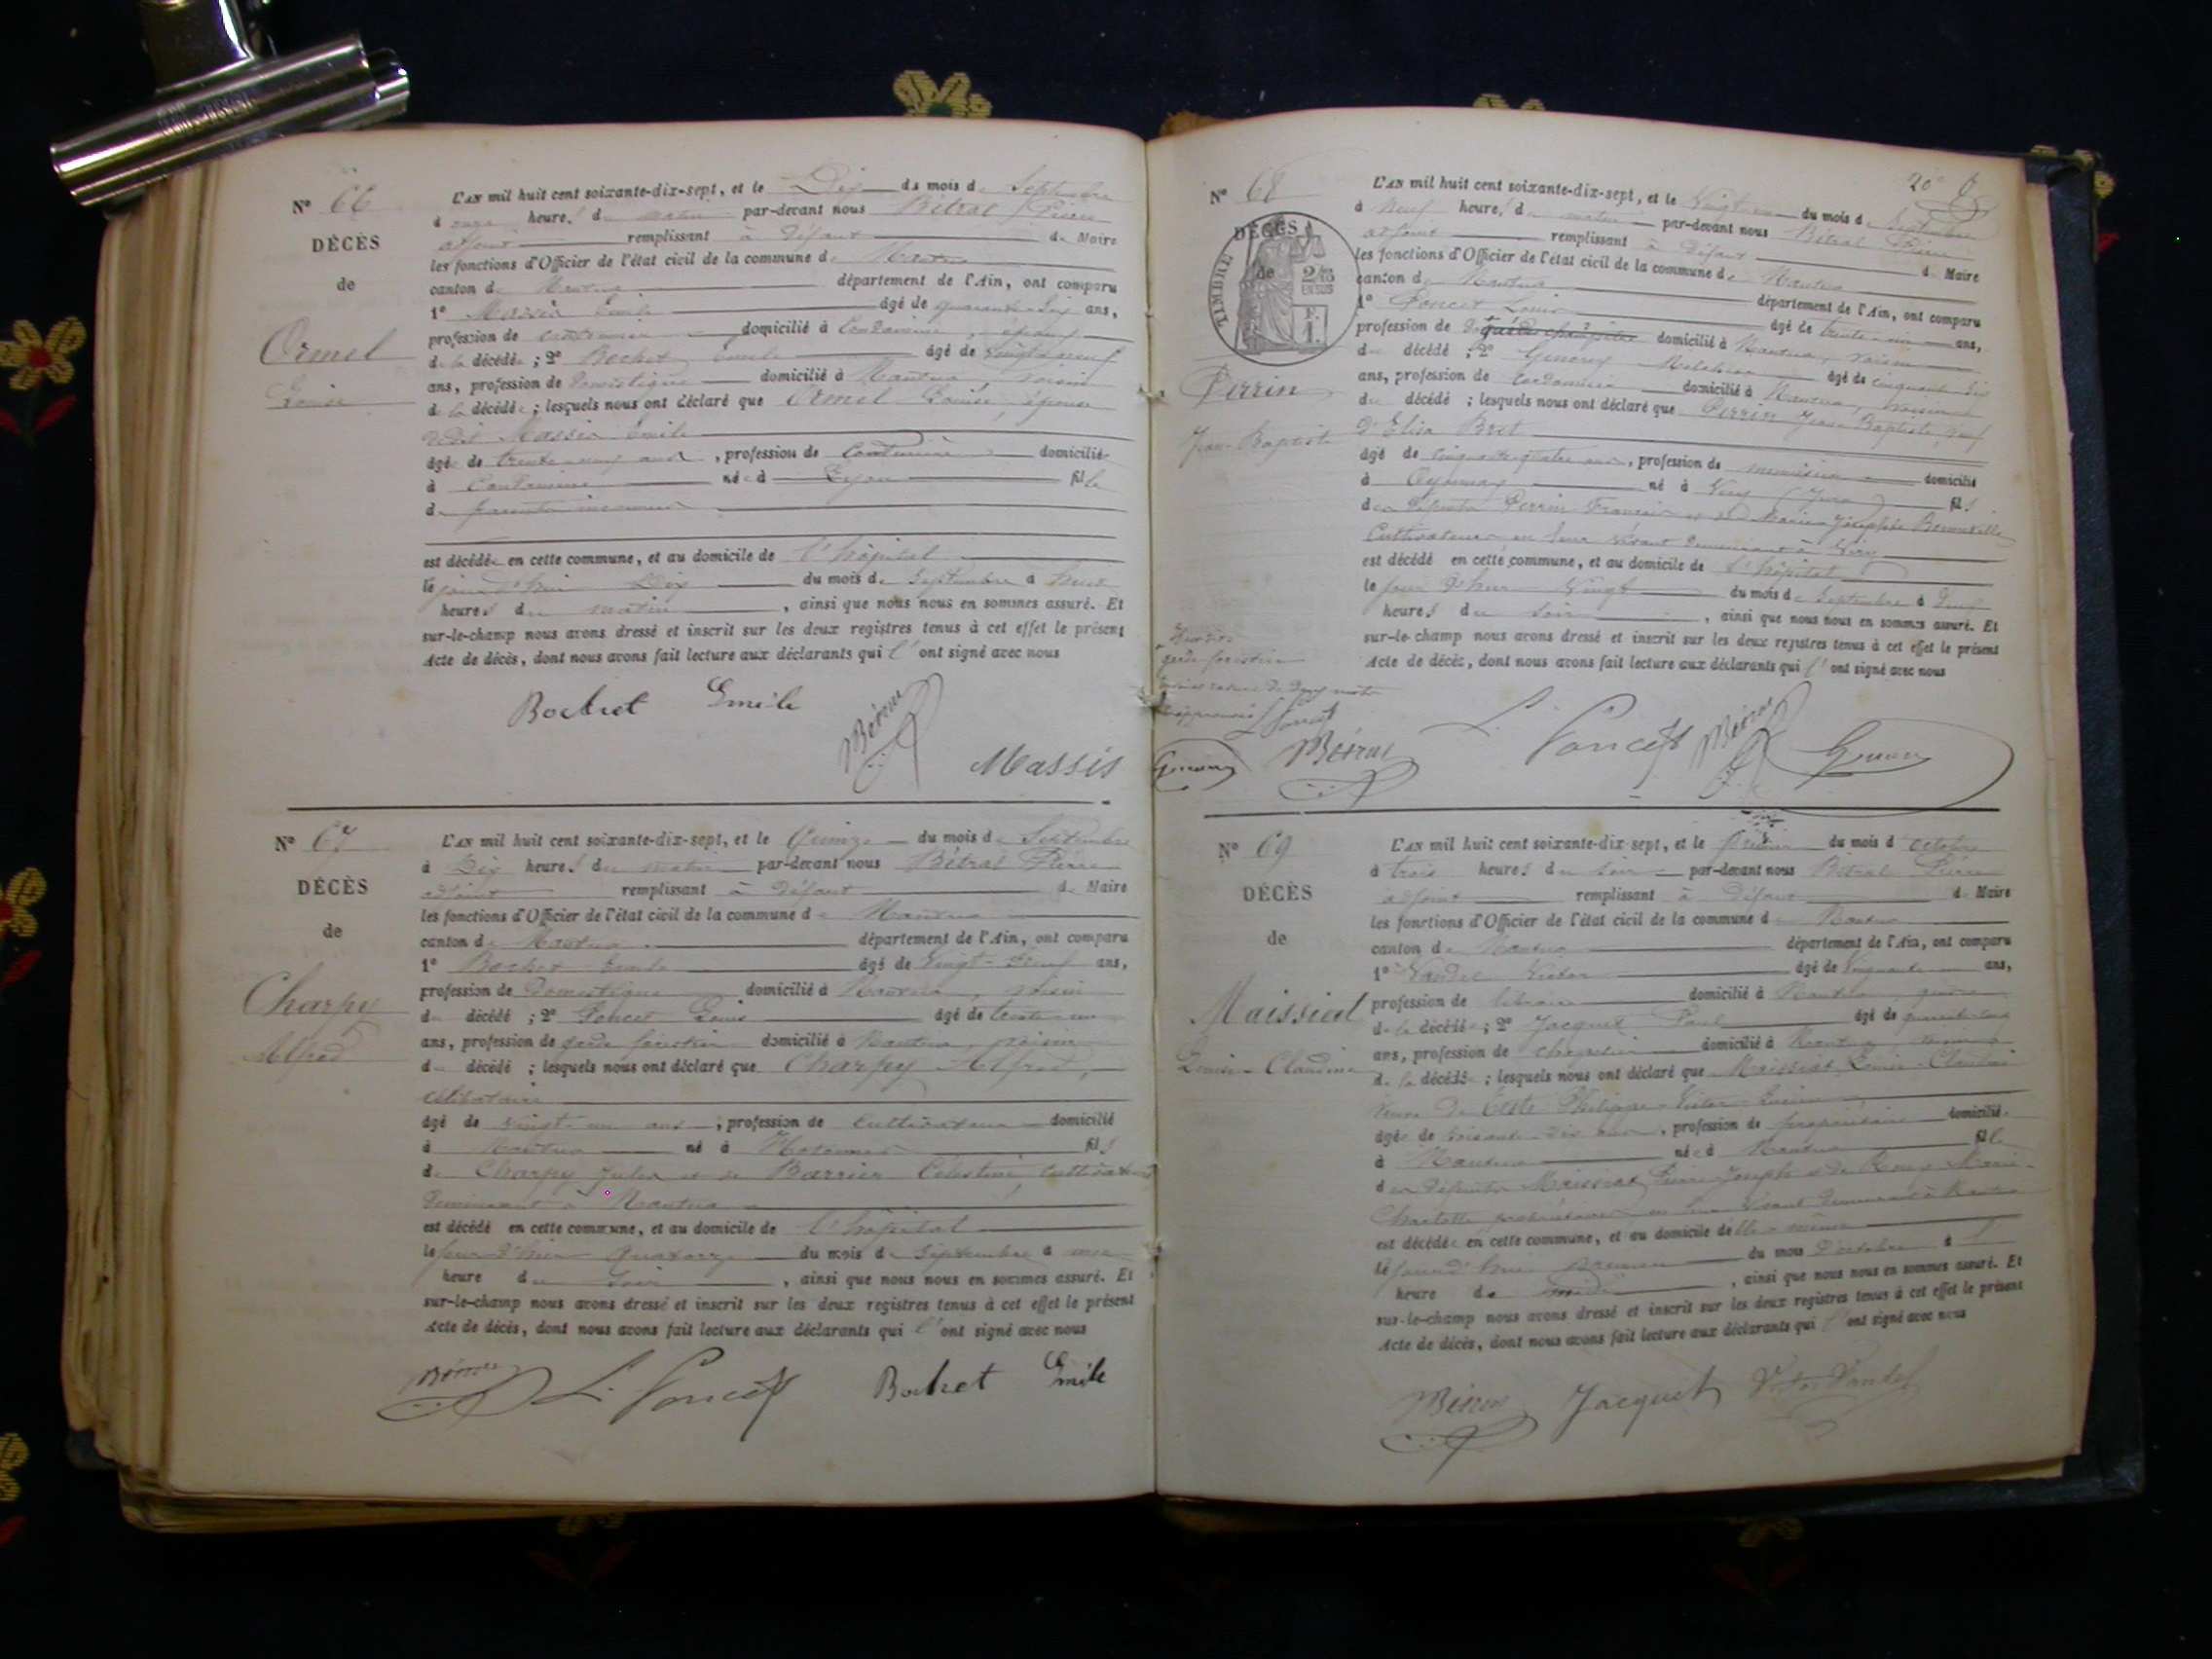 N° 66
DÉCÈS
de
Ormel
Louise
L'AN mil huit cent soixante-dix-sept, et le Dix du mois de Septembre
à onze heures du matin par-devant nous Bétral Pierre
adjoint remplissant à défaut du Maire
les fonctions d'Officier de l'état civil de la commune de Nantua
canton de Nantua département de l'Ain, ont comparu
1° Massis Emile âgé de quarante-six ans,
profession de domicilié à époux
de la décédée ; 2° Bochet Emile âgé de vingt-neuf
ans, profession de Domestique domicilié à Nantua voisin
de la décédée ; lesquels nous ont déclaré que Ormel Louise, épouse
dudit Massis Emile
âgée de trente-neuf ans, profession de domiciliée
à née à Lyon fille
de parents inconnus
est décédée en cette commune, et au domicile de l'hôpital
le jourd'hui Dix du mois de Septembre à neuf
heures du matin, ainsi que nous nous en sommes assuré. Et
sur-le-champ nous avons dressé et inscrit sur les deux registres tenus à cet effet le présent
Acte de décès, dont nous avons fait lecture aux déclarants qui l'ont signé avec nous
Bochet Emile
Bétral
Massis
N° 67
DÉCÈS
de
Charpy
Alfred
L'AN mil huit cent soixante-dix-sept, et le Quinze du mois de Septembre
à Dix heures du matin par-devant nous Bétral Pierre
adjoint remplissant à défaut du Maire
les fonctions d'Officier de l'état civil de la commune de Nantua
canton de Nantua département de l'Ain, ont comparu
1° Bochet Emile âgé de Vingt-neuf ans,
profession de Domestique domicilié à Nantua, voisin
du décédé ; 2° Poncet Louis âgé de trente-un
ans, profession de garde forestier domicilié à Nantua, voisin
du décédé ; lesquels nous ont déclaré que Charpy Alfred,
célibataire
âgé de vingt-un ans, profession de cultivateur domicilié
à Nantua né à fils
de Charpy Jules et de Barrier Célestine, cultivateurs
demeurant à Nantua
est décédé en cette commune, et au domicile de l'hôpital
le jour d'hier Quatorze du mois de Septembre à une
heure du soir, ainsi que nous nous en sommes assuré. Et
sur-le-champ nous avons dressé et inscrit sur les deux registres tenus à cet effet le présent
Acte de décès, dont nous avons fait lecture aux déclarants qui l'ont signé avec nous
Bétral L. Poncet Bochet Emile
20e
N° 68
DÉCÈS
de
TIMBRE
2/10 EN SUS
F. 1.
Perrin
Jean-Baptiste
L'AN mil huit cent soixante-dix-sept, et le Vingt-un du mois de Septembre
à neuf heures du matin par-devant nous Bétral Pierre
adjoint remplissant à défaut du Maire
les fonctions d'Officier de l'état civil de la commune de Nantua
canton de Nantua département de l'Ain, ont comparu
1° Poncet Louis âgé de trente-un ans,
profession de garde champêtre domicilié à Nantua, voisin
du décédé ; 2° âgé de cinquante-six
ans, profession de Cordonnier domicilié à Nantua, voisin
du décédé ; lesquels nous ont déclaré que Perrin Jean Baptiste, veuf
d'Elisa Bret
âgé de cinquante-quatre ans, profession de menuisier domicilié
à Oyonnax né à Viry (Jura) fils
des défunts Perrin François et de Marie Josephte
Cultivateurs en leur vivant demeurant à Viry
est décédé en cette commune, et au domicile de l'hôpital
le jour d'hier Vingt du mois de Septembre à neuf
heures du soir, ainsi que nous nous en sommes assuré. Et
sur-le-champ nous avons dressé et inscrit sur les deux registres tenus à cet effet le présent
Acte de décès, dont nous avons fait lecture aux déclarants qui l'ont signé avec nous
garde forestier
rature de deux mots
Poncet
Bétral
L. Poncet Bétral
N° 69
DÉCÈS
de
Maissiat
Louise-Claudine
L'AN mil huit cent soixante-dix-sept, et le premier du mois d'octobre
à trois heures du soir par-devant nous Bétral Pierre
adjoint remplissant à défaut du Maire
les fonctions d'Officier de l'état civil de la commune de Nantua
canton de Nantua département de l'Ain, ont comparu
1° Vandel Victor âgé de cinquante ans,
profession de libraire domicilié à Nantua, gendre
de la décédée ; 2° Jacquet Paul âgé de quarante-cinq
ans, profession de chapelier domicilié à Nantua, voisin
de la décédée ; lesquels nous ont déclaré que Maissiat Louise-Claudine
veuve de Philippe-Victor-
âgée de soixante-dix ans, profession de propriétaire domiciliée
à Nantua née à Nantua fille
des défunts Maissiat Pierre-Joseph et de Marie-
Charlotte propriétaires en leur vivant demeurant à Nantua
est décédée en cette commune, et au domicile d'elle-même
le jourd'hui premier du mois d'octobre à l'
heure de midi, ainsi que nous nous en sommes assuré. Et
sur-le-champ nous avons dressé et inscrit sur les deux registres tenus à cet effet le présent
Acte de décès, dont nous avons fait lecture aux déclarants qui l'ont signé avec nous
Bétral Jacquet Victor Vandel